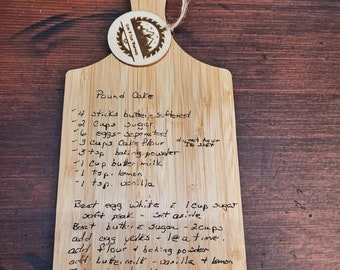 Pound Cake
4 sticks butter - softened
2 cups sugar
6 eggs - seperated
3 cups Cake flour
3 tsp baking-powder
1 cup butter milk
1 tsp. lemon
1 tsp. vanilla
Beat egg white & 1 cup sugar
soft peak - set aside
Beat butter & sugar - 2 cups
add egg yolks - 1 ea time.
add flour & baking powder
add buttermilk - vanilla & lemon